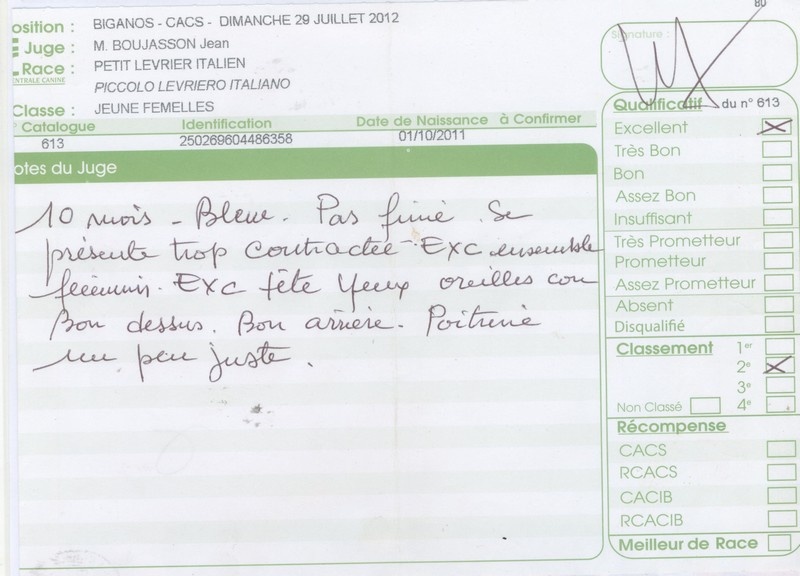 80
osition : BIGANOS - CACS - DIMANCHE 29 JUILLET 2012
Juge : M. BOUJASSON Jean
Race : PETIT LEVRIER ITALIEN
CENTRALE CANINE
PICCOLO LEVRIERO ITALIANO
Classe : JEUNE FEMELLES
Catalogue Identification Date de Naissance à Confirmer
613 250269604486358 01/10/2011
otes du Juge
10 mois - Bleue. Pas finie. Se
présente trop contractée. Exc ensemble
féminin. Exc tête yeux oreilles cou
Bon dessus. Bon arrière. Poitrine
un peu juste.
Signature :
Qualificatif du n° 613
Excellent
Très Bon
Bon
Assez Bon
Insuffisant
Très Prometteur
Prometteur
Assez Prometteur
Absent
Disqualifié
Classement 1er
2e
3e
Non Classé 4e
Récompense
CACS
RCACS
CACIB
RCACIB
Meilleur de Race